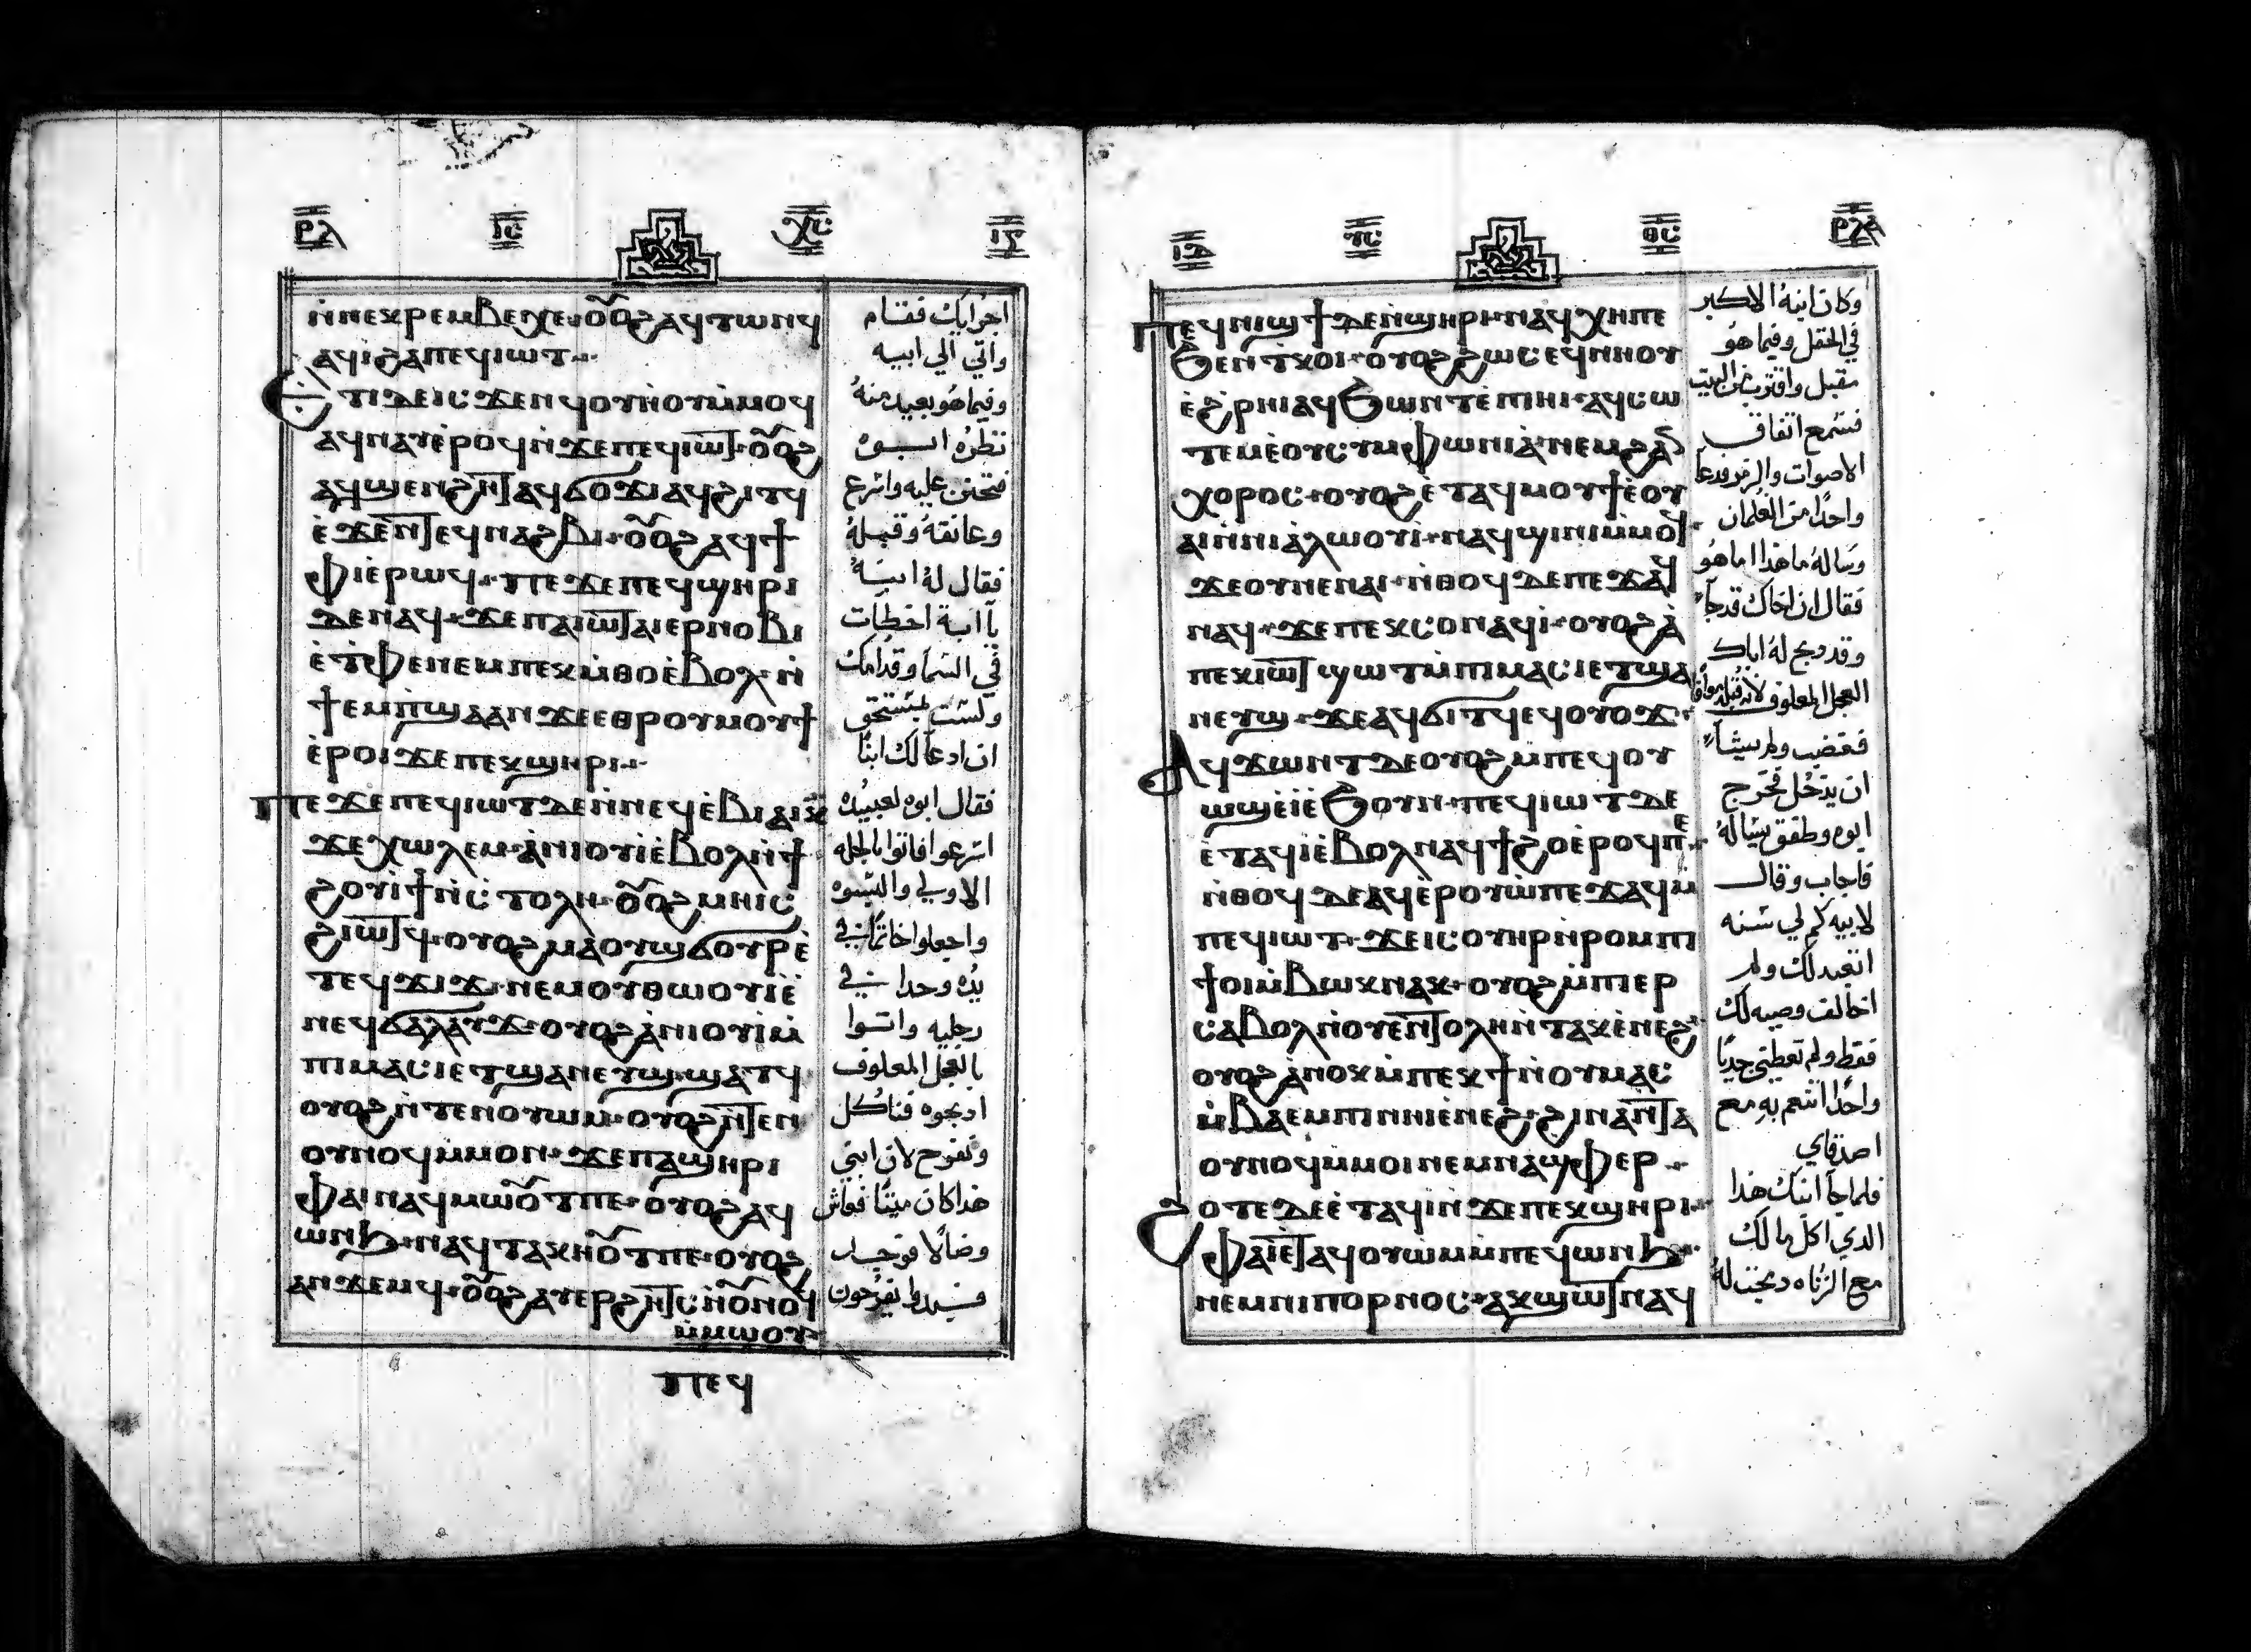 ⲣⲗ ⲓⲥ ⲭⲥ ⲓⲅ
ⲛ̀ⲛⲉⲕⲣⲉⲙⲃⲉⲭⲉ ⲟⲩⲟϩ ⲁϥⲧⲱⲛϥ
ⲁϥⲓϩⲁⲡⲉϥⲓⲱⲧ
ⲉⲧⲓⲇⲉⲓⲥϫⲉⲛϥⲟⲩⲏⲟⲩⲙ̀ⲙⲟϥ
ⲁϥⲛⲁⲩⲉ̀ⲣⲟϥⲛ̀ϫⲉⲡⲉϥⲓⲱⲧ ⲟⲩⲟϩ
ⲁϥϣⲉⲛϩⲏⲧ ⲁϥϭⲟϫⲓ ⲁϥϩⲓⲧϥ
ⲉ̀ϫⲉⲛⲧⲉϥⲛⲁϩⲃⲓ ⲟⲩⲟϩ ⲁϥϯ
ⲫⲓⲉ̀ⲣⲱϥ ⲡⲉϫⲉⲡⲉϥϣⲏⲣⲓ
ⲇⲉⲛⲁϥ ϫⲉⲡⲁⲓⲱⲧ ⲁⲓⲉⲣⲛⲟⲃⲓ
ⲉ̀ⲧ̀ⲫⲉⲛⲉⲙⲡⲉⲕⲙ̀ⲑⲟⲉ̀ⲃⲟⲗ ⲛ̀
ϯⲉⲙⲡ̀ϣⲁⲁⲛϫⲉⲉⲑⲣⲟⲩⲙⲟⲩϯ
ⲉ̀ⲣⲟⲓϫⲉⲡⲉⲕϣⲏⲣⲓ
ⲡⲉϫⲉⲡⲉϥⲓⲱⲧⲇⲉⲛ̀ⲛⲉϥⲉ̀ⲃⲓⲁⲓⲕ
ϫⲉⲭⲱⲗⲉⲙ ⲁ̀ⲛⲓⲟⲩⲓⲉ̀ⲃⲟⲗⲛ̀ϯ
ϩⲟⲩⲓ̀ϯⲛ̀ⲥ̀ⲧⲟⲗⲏ ⲟⲩⲟϩ ⲙⲏⲓⲥ
ϩⲓⲱⲧϥ ⲟⲩⲟϩ ⲙⲁⲟⲩϣϭⲟⲩⲣⲉ̀
ⲧⲉϥϫⲓϫ ⲛⲉⲙⲟⲩⲑⲱⲟⲩⲓⲉ̀
ⲛⲉϥϭⲁⲗⲁⲩϫ ⲟⲩⲟϩ ⲁ̀ⲛⲓⲟⲩⲓⲙ̀
ⲡⲓⲙⲁⲥⲓⲉⲧϣⲁⲛⲉⲩϣ ϣⲁⲧϥ
ⲟⲩⲟϩ ⲛ̀ⲧⲉⲛⲟⲩⲱⲙ ⲟⲩⲟϩ ⲛⲧⲉⲛ
ⲟⲩⲛⲟϥⲙ̀ⲙⲟⲛ ϫⲉⲡⲁϣⲏⲣⲓ
ⲫⲁⲓⲛⲁϥⲙⲱⲟⲩⲧⲡⲉ ⲟⲩⲟϩ ⲁϥ
ⲱⲛϧ ⲛⲁϥⲧⲁⲕⲏⲟⲩⲧⲡⲉ ⲟⲩⲟϩ
ⲁⲛϫⲉⲙϥ ⲟⲩⲟϩ ⲁⲩⲉⲣϩⲏⲧⲥⲛ̀ⲟⲩⲛⲟϥ
ⲙ̀ⲙⲱⲟⲩ
ⲡⲉϥ
اجرايك فقام
واتي الي ابيه
وفيما هو بعيد منه
نظره ابوه
فتحنن عليه واسرع
وعانقه وقبله
فقال له ابنه
يا ابة اخطات
في السما وقدامك
ولست بمستحق
ان ادعا لك ابنا
فقال ابوه لعبيده
اسرعوا فاتوا بالحله
الاولي والبسوه
واجعلوا خاتما في
يده وحدا في
رجليه واتوا
بالعجل المعلوف
اذبحوه فناكل
ونفرح لان ابني
هذا كان ميتا فعاش
وضالا فوجد
فبدوا يفرحون
ⲩⲥ ⲑⲥ ⲣⲗⲁ
ⲡⲉϥⲛⲓϣϯⲇⲉⲛ̀ϣⲏⲣⲓ ⲛⲁϥⲭⲏⲡⲉ
ϧⲉⲛⲧⲕⲟⲓ ⲟⲩⲟϩ ϩⲱⲥⲉϥⲛⲏⲟⲩ
ⲉ̀ϩ̀ⲣⲏⲓⲁϥϧⲱⲛⲧⲉ̀ⲡⲓⲏⲓ ⲁϥⲥⲱ
ⲧⲉⲙⲉ̀ⲟⲩⲥⲩⲙⲫⲱⲛⲓⲁ̀ ⲛⲉⲙϩⲁⲛ
ⲭⲟⲣⲟⲥ ⲟⲩⲟϩ ⲉ̀ⲧⲁϥⲙⲟⲩϯⲉ̀ⲟⲩ
ⲁⲓⲛ̀ⲛⲓⲁ̀ⲗⲱⲟⲩⲓ ⲛⲁϥϣⲓⲛⲓⲙ̀ⲙⲟϥ
ϫⲉⲟⲩⲡⲉⲛⲁⲓ ⲛ̀ⲑⲟϥⲇⲉⲡⲉϫⲁϥ
ⲛⲁϥ ϫⲉⲡⲉⲕⲥⲟⲛⲁϥⲓ̀ ⲟⲩⲟϩ ⲁ̀
ⲡⲉⲕⲓⲱⲧ ϣⲱⲧⲙ̀ⲡⲓⲙⲁⲥⲓⲉⲧϣⲁ
ⲛⲉⲩϣ ϫⲉⲁϥϭⲓⲧϥⲉϥⲟⲩⲟϫ
ⲁϥϫⲱⲛⲧⲇⲉⲟⲩⲟϩ ⲙ̀ⲡⲉϥⲟⲩ
ⲱϣⲉ̀ⲓ̀ⲉ̀ϧⲟⲩⲛ ⲡⲉϥⲓⲱⲧⲇⲉ
ⲉ̀ⲧⲁϥⲓ̀ⲉ̀ⲃⲟⲗⲛⲁϥϯϩⲟⲉ̀ⲣⲟϥⲡⲉ
ⲛ̀ⲑⲟϥⲇⲉⲁϥⲉⲣⲟⲩⲱ̀ⲡⲉϫⲁϥⲙ̀
ⲡⲉϥⲓⲱⲧ ϫⲉⲓⲥⲟⲩⲏⲣⲛ̀ⲣⲟⲙⲡⲓ
ϯⲟⲓⲙ̀ⲃⲱⲕⲛⲁⲕ ⲟⲩⲟϩ ⲙ̀ⲡⲓⲉⲣ
ⲥⲁⲃⲟⲗⲛ̀ⲟⲩⲉⲛⲧⲟⲗⲏⲛ̀ⲧⲁⲕⲉ̀ⲛⲉϩ
ⲟⲩⲟϩ ⲁ̀ⲛⲟⲕⲙ̀ⲡⲉⲕϯⲛ̀ⲟⲩⲙⲁⲥ
ⲙ̀ⲃⲁⲉⲙⲡⲓⲛⲏⲓⲉ̀ⲛⲉϩ ϩⲓⲛⲁⲛⲧⲁ
ⲟⲩⲛⲟϥⲙ̀ⲙⲟⲓⲛⲉⲙⲛⲁϣⲫⲉⲣ
ϩⲟⲧⲉⲇⲉⲉ̀ⲧⲁϥⲓ̀ⲛ̀ϫⲉⲡⲉⲕϣⲏⲣⲓ
ⲫⲁⲓⲉⲧⲁϥⲟⲩⲱⲙⲙ̀ⲡⲉϥⲱⲛϧ
ⲛⲉⲙⲛⲓⲡⲟⲣⲛⲟⲥ ⲁⲕϣⲱⲧ ⲛⲁϥ
وكان ابنه الاكبر
في الحقل وفيما هو
مقبل واقترب من البيت
فسمع اتفاق
الاصوات والزمر فدعا
واحدا من الغلمان
وساله ما هذا اما هو
فقال ان اخاك قد جا
وقد دبح له اباك
العجل المعلوف لانه قبله معافا
فغضب ولم يشا
ان يدخل فخرج
ابوه وطفق يساله
فاجاب وقال
لابيه كم لي سنه
اتعبد لك ولم
اخالف وصيه لك
فقط ولم تعطيني جديا
واحدا اتنعم به مع
اصدقاي
فلما جا ابنك هذا
الذي اكل مالك
مع الزناه دبحت له